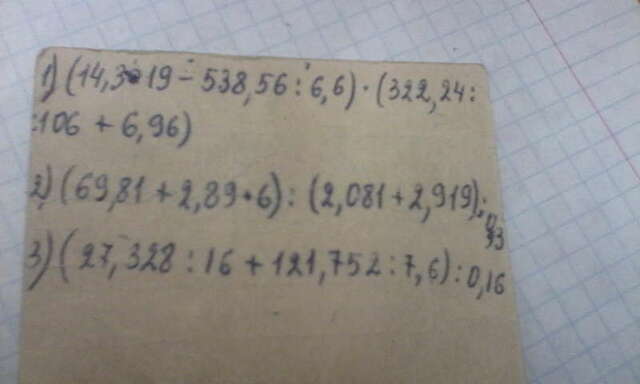 1) (14,3 · 19 - 538,56 : 6,6) · (322,24 :
: 106 + 6,96)
2) (69,81 + 2,89 · 6) : (2,081 + 2,919) :
3) (27,328 : 16 + 121,752 : 7,6) : 0,16